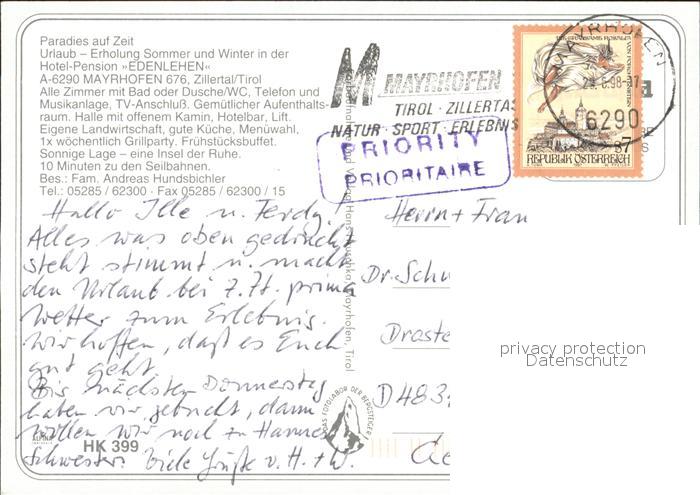 Paradies auf Zeit
Urlaub – Erholung Sommer und Winter in der
Hotel-Pension »EDENLEHEN«
A-6290 MAYRHOFEN 676, Zillertal/Tirol
Alle Zimmer mit Bad oder Dusche/WC, Telefon und
Musikanlage, TV-Anschluß. Gemütlicher Aufenthalts-
raum. Halle mit offenem Kamin, Hotelbar, Lift.
Eigene Landwirtschaft, gute Küche, Menüwahl,
1x wöchentlich Grillparty. Frühstücksbuffet.
Sonnige Lage – eine Insel der Ruhe.
10 Minuten zu den Seilbahnen.
Bes.: Fam. Andreas Hundsbichler
Tel.: 05285 / 62300 · Fax 05285 / 62300 / 15
Hallo Ille u. Ferdy!
Alles was oben gedruckt
steht stimmt u. macht
den Urlaub bei z.Zt. prima
Wetter zum Erlebnis.
Wir hoffen, daß es Euch
gut geht.
Bis nächsten Donnerstag
haben wir gebucht, dann
wollen wir noch zu Hannes
Schwester. Viele Grüße v. H. + W.
HK 399
ALPINA
DAS FOTOLABOR DER BERGSTEIGER
Mayrhofen, Tirol
MAYRHOFEN
TIROL · ZILLERTA
NATUR · SPORT · ERLEBNIS
PRIORITY
PRIORITAIRE
MAYRHOFEN
6290
S 7
REPUBLIK ÖSTERREICH
Herrn + Frau
Dr. Schu
Droste
D 483
privacy protection
Datenschutz